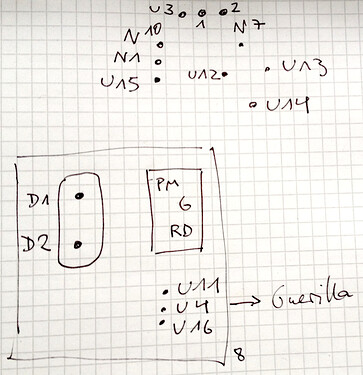 U3 1 2
N10 N7
N1
U15 U12 U13
U14
D1 PM
G
D2 RD
U11
U4 → Guerilla
U16
8